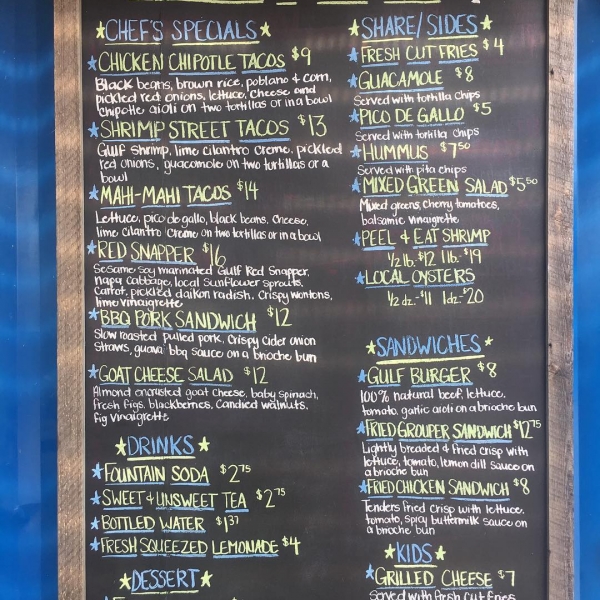 CHEF'S SPECIALS
CHICKEN CHIPOTLE TACOS $9
Black beans, brown rice, poblano & corn,
pickled red onions, lettuce, cheese and
chipotle aioli on two tortillas or in a bowl
SHRIMP STREET TACOS $13
Gulf shrimp, lime cilantro creme, pickled
red onions, guacamole on two tortillas or a
bowl
MAHI-MAHI TACOS $14
Lettuce, pico de gallo, black beans, cheese,
lime cilantro creme on two tortillas or in a bowl
RED SNAPPER $16
Sesame soy marinated Gulf Red Snapper,
napa cabbage, local sunflower sprouts,
carrot, pickled daikon radish, crispy wontons,
lime vinaigrette
BBQ PORK SANDWICH $12
Slow roasted pulled pork, crispy cider onion
straws, guava bbq sauce on a brioche bun
GOAT CHEESE SALAD $12
Almond encrusted goat cheese, baby spinach,
fresh figs, blackberries, candied walnuts,
fig vinaigrette
DRINKS
FOUNTAIN SODA $2.75
SWEET & UNSWEET TEA $2.75
BOTTLED WATER $1.37
FRESH SQUEEZED LEMONADE $4
DESSERT
SHARE/SIDES
FRESH CUT FRIES $4
GUACAMOLE $8
Served with tortilla chips
PICO DE GALLO $5
Served with tortilla chips
HUMMUS $7.50
Served with pita chips
MIXED GREEN SALAD $5.50
Mixed greens, cherry tomatoes,
balsamic vinaigrette
PEEL & EAT SHRIMP
1/2 lb. $12 1 lb. $19
LOCAL OYSTERS
1/2 dz. $11 1 dz. $20
SANDWICHES
GULF BURGER $8
100% natural beef, lettuce,
tomato, garlic aioli on a brioche bun
FRIED GROUPER SANDWICH $12.75
Lightly breaded & fried crisp with
lettuce, tomato, lemon dill sauce on
a brioche bun
FRIED CHICKEN SANDWICH $8
Tenders fried crisp with lettuce,
tomato, spicy buttermilk sauce on
a brioche bun
KIDS
GRILLED CHEESE $7
Served with fresh cut fries